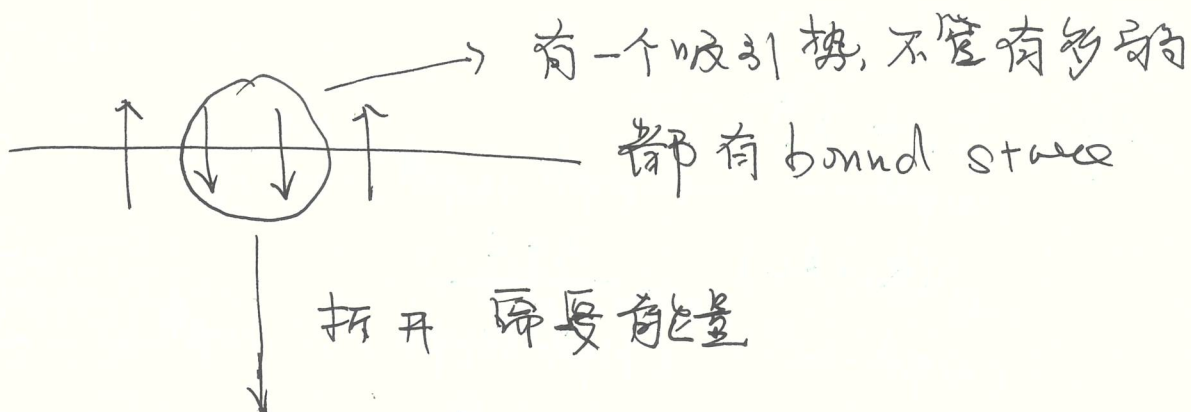 有一个吸引势,不管有多弱
都有 bound state
拆开 需要能量